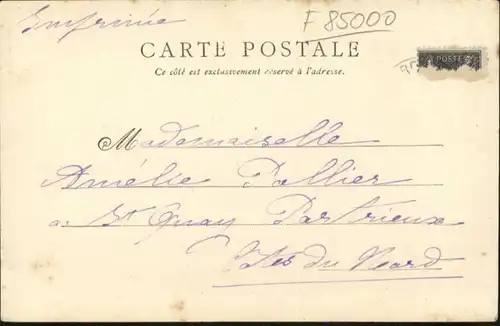 Imprimée
F 85000
CARTE POSTALE
Ce côté est exclusivement réservé à l'adresse.
POSTES
Mademoiselle
Amélie Pallier
a St Quay Portrieux
Côtes du Nord